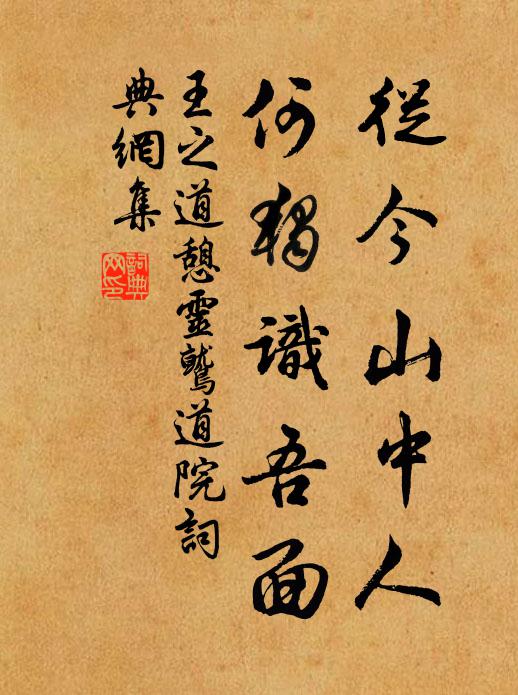 從今山中人
何獨識吾面
王之道憩靈鷲道院詞
典網集
詞典網印